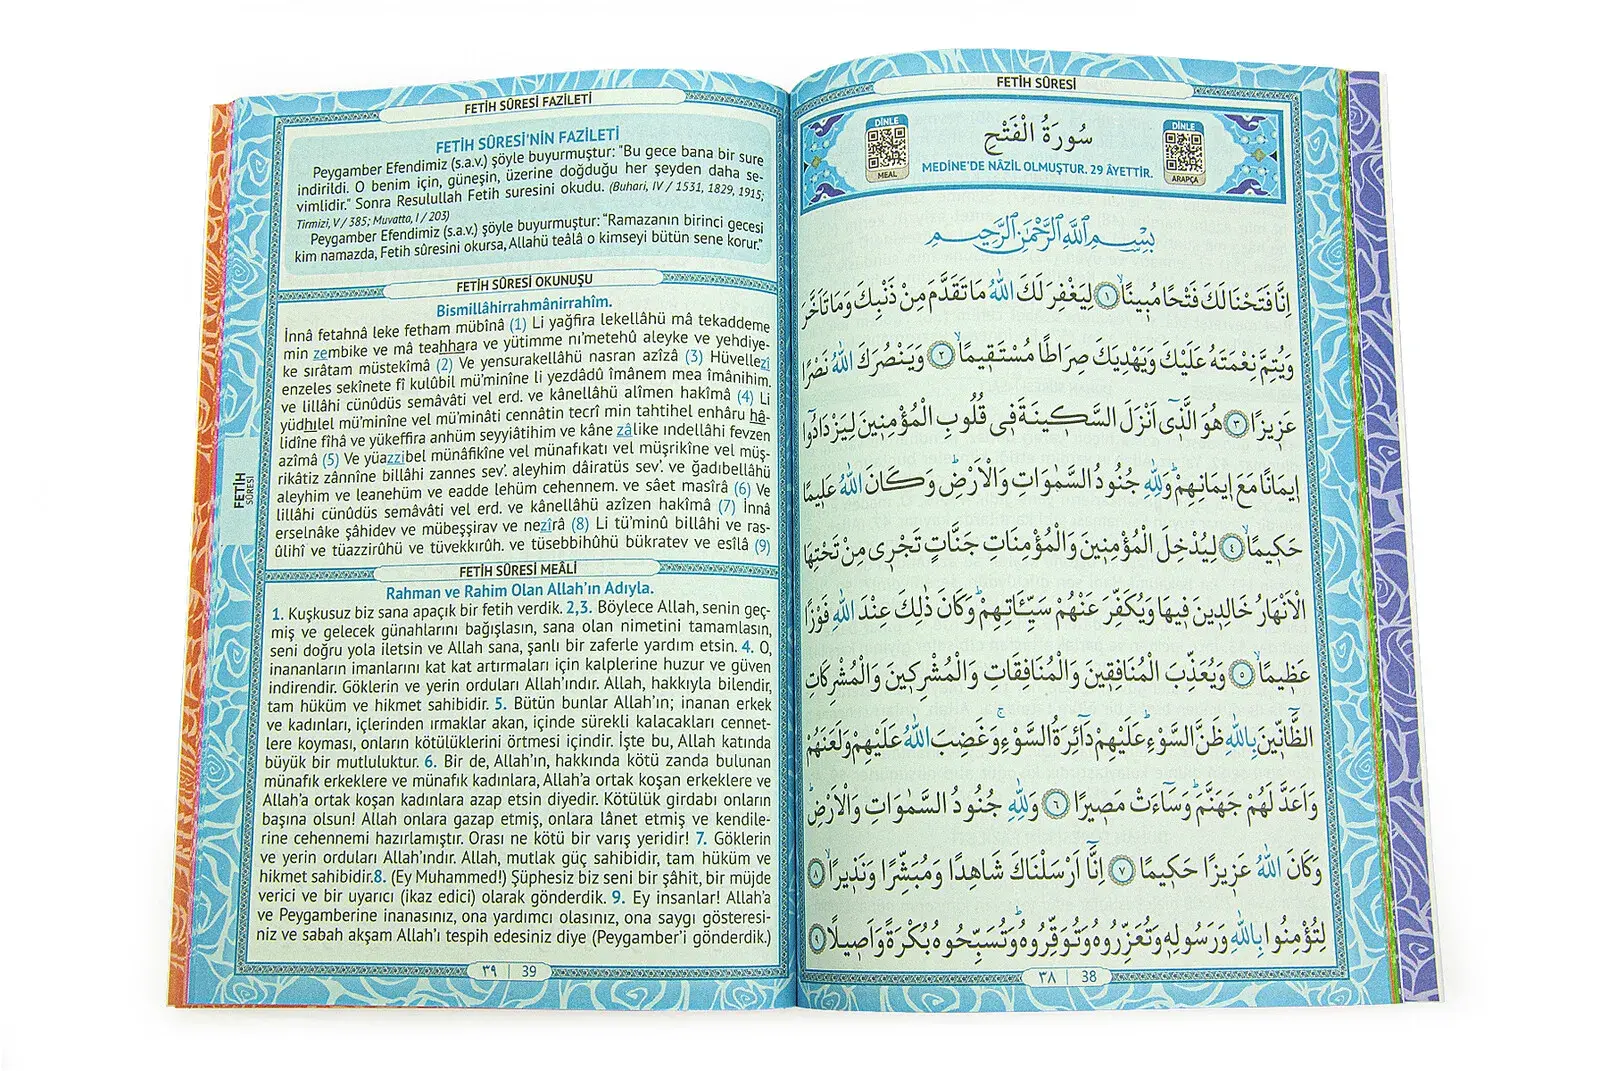 FETİH SÛRESİ FAZİLETİ
FETİH SÛRESİ'NİN FAZİLETİ
Peygamber Efendimiz (s.a.v.) şöyle buyurmuştur: "Bu gece bana bir sure
indirildi. O benim için, güneşin, üzerine doğduğu her şeyden daha se-
vimlidir." Sonra Resulullah Fetih suresini okudu. (Buhari, IV / 1531, 1829, 1915;
Tirmizi, V / 385; Muvatta, I / 203)
Peygamber Efendimiz (s.a.v.) şöyle buyurmuştur: "Ramazanın birinci gecesi
kim namazda, Fetih sûresini okursa, Allahü teâlâ o kimseyi bütün sene korur."
FETİH SÛRESİ OKUNUŞU
Bismillâhirrahmânirrahîm.
İnnâ fetahnâ leke fetham mübînâ (1) Li yağfira lekellâhü mâ tekaddeme
min zembike ve mâ teahhara ve yütimme nı'metehû aleyke ve yehdiye-
ke sırâtam müstekîmâ (2) Ve yensurakellâhü nasran azîzâ (3) Hüvellezî
enzeles sekînete fî kulûbil mü'minîne li yezdâdû îmânem mea îmânihim.
ve lillâhi cünûdüs semâvâti vel erd. ve kânellâhü alîmen hakîmâ (4) Li
yüdhilel mü'minîne vel mü'minâti cennâtin tecrî min tahtihel enhâru hâ-
lidîne fîhâ ve yükeffira anhüm seyyiâtihim ve kâne zâlike ındellâhi fevzen
azîmâ (5) Ve yüazzibel münâfikîne vel münafıkatı vel müşrikîne vel müş-
rikâtiz zânnîne billâhi zannes sev'. aleyhim dâiratüs sev'. ve ğadıbellâhü
aleyhim ve leanehüm ve eadde lehüm cehennem. ve sâet masîrâ (6) Ve
lillâhi cünûdüs semâvâti vel erd. ve kânellâhü azîzen hakîmâ (7) İnnâ
erselnâke şâhidev ve mübeşşirav ve nezîrâ (8) Li tü'minû billâhi ve ras-
ûlihî ve tüazzirûhü ve tüvekkırûh. ve tüsebbihûhü bükratev ve esîlâ (9)
FETİH SÛRESİ MEÂLİ
Rahman ve Rahim Olan Allah'ın Adıyla.
1. Kuşkusuz biz sana apaçık bir fetih verdik. 2,3. Böylece Allah, senin geç-
miş ve gelecek günahlarını bağışlasın, sana olan nimetini tamamlasın,
seni doğru yola iletsin ve Allah sana, şanlı bir zaferle yardım etsin. 4. O,
inananların imanlarını kat kat artırmaları için kalplerine huzur ve güven
indirendir. Göklerin ve yerin orduları Allah'ındır. Allah, hakkıyla bilendir,
tam hüküm ve hikmet sahibidir. 5. Bütün bunlar Allah'ın; inanan erkek
ve kadınları, içlerinden ırmaklar akan, içinde sürekli kalacakları cennet-
lere koyması, onların kötülüklerini örtmesi içindir. İşte bu, Allah katında
büyük bir mutluluktur. 6. Bir de, Allah'ın, hakkında kötü zanda bulunan
münafık erkeklere ve münafık kadınlara, Allah'a ortak koşan erkeklere ve
Allah'a ortak koşan kadınlara azap etsin diyedir. Kötülük girdabı onların
başına olsun! Allah onlara gazap etmiş, onlara lânet etmiş ve kendile-
rine cehennemi hazırlamıştır. Orası ne kötü bir varış yeridir! 7. Göklerin
ve yerin orduları Allah'ındır. Allah, mutlak güç sahibidir, tam hüküm ve
hikmet sahibidir.8. (Ey Muhammed!) Şüphesiz biz seni bir şâhit, bir müjde
verici ve bir uyarıcı (ikaz edici) olarak gönderdik. 9. Ey insanlar! Allah'a
ve Peygamberine inanasınız, ona yardımcı olasınız, ona saygı gösteresi-
niz ve sabah akşam Allah'ı tespih edesiniz diye (Peygamber'i gönderdik.)
٣٩ | 39
FETİH
SÛRESİ
FETİH SÛRESİ
DİNLE
MEAL
سُورَةُ الْفَتْحِ
MEDİNE'DE NÂZİL OLMUŞTUR. 29 ÂYETTİR.
DİNLE
ARAPÇA
بِسْمِ اللّٰهِ الرَّحْمٰنِ الرَّحِيمِ
اِنَّا فَتَحْنَا لَكَ فَتْحًا مُبِينًاۙ ١ لِيَغْفِرَ لَكَ اللّٰهُ مَا تَقَدَّمَ مِنْ ذَنْبِكَ وَمَا تَاَخَّرَ
وَيُتِمَّ نِعْمَتَهُ عَلَيْكَ وَيَهْدِيَكَ صِرَاطًا مُسْتَقِيمًاۙ ٢ وَيَنْصُرَكَ اللّٰهُ نَصْرًا
عَزِيزًا ٣ هُوَ الَّذٖٓى اَنْزَلَ السَّكٖينَةَ فٖى قُلُوبِ الْمُؤْمِنٖينَ لِيَزْدَادُٓوا
اٖيمَانًا مَعَ اٖيمَانِهِمْؕ وَلِلّٰهِ جُنُودُ السَّمٰوَاتِ وَالْاَرْضِؕ وَكَانَ اللّٰهُ عَلٖيمًا
حَكٖيمًاۙ ٤ لِيُدْخِلَ الْمُؤْمِنٖينَ وَالْمُؤْمِنَاتِ جَنَّاتٍ تَجْرٖى مِنْ تَحْتِهَا
الْاَنْهَارُ خَالِدٖينَ فٖيهَا وَيُكَفِّرَ عَنْهُمْ سَيِّـَٔاتِهِمْؕ وَكَانَ ذٰلِكَ عِنْدَ اللّٰهِ فَوْزًا
عَظٖيمًاۙ ٥ وَيُعَذِّبَ الْمُنَافِقٖينَ وَالْمُنَافِقَاتِ وَالْمُشْرِكٖينَ وَالْمُشْرِكَاتِ
الظَّٓانّٖينَ بِاللّٰهِ ظَنَّ السَّوْءِؕ عَلَيْهِمْ دَٓائِرَةُ السَّوْءِۚ وَغَضِبَ اللّٰهُ عَلَيْهِمْ وَلَعَنَهُمْ
وَاَعَدَّ لَهُمْ جَهَنَّمَؕ وَسَٓاءَتْ مَصٖيرًا ٦ وَلِلّٰهِ جُنُودُ السَّمٰوَاتِ وَالْاَرْضِؕ
وَكَانَ اللّٰهُ عَزٖيزًا حَكٖيمًا ٧ اِنَّٓا اَرْسَلْنَاكَ شَاهِدًا وَمُبَشِّرًا وَنَذٖيرًاۙ ٨
لِتُؤْمِنُوا بِاللّٰهِ وَرَسُولِهٖ وَتُعَزِّرُوهُ وَتُوَقِّرُوهُؕ وَتُسَبِّحُوهُ بُكْرَةً وَاَصٖيلًا ٩
٣٨ | 38